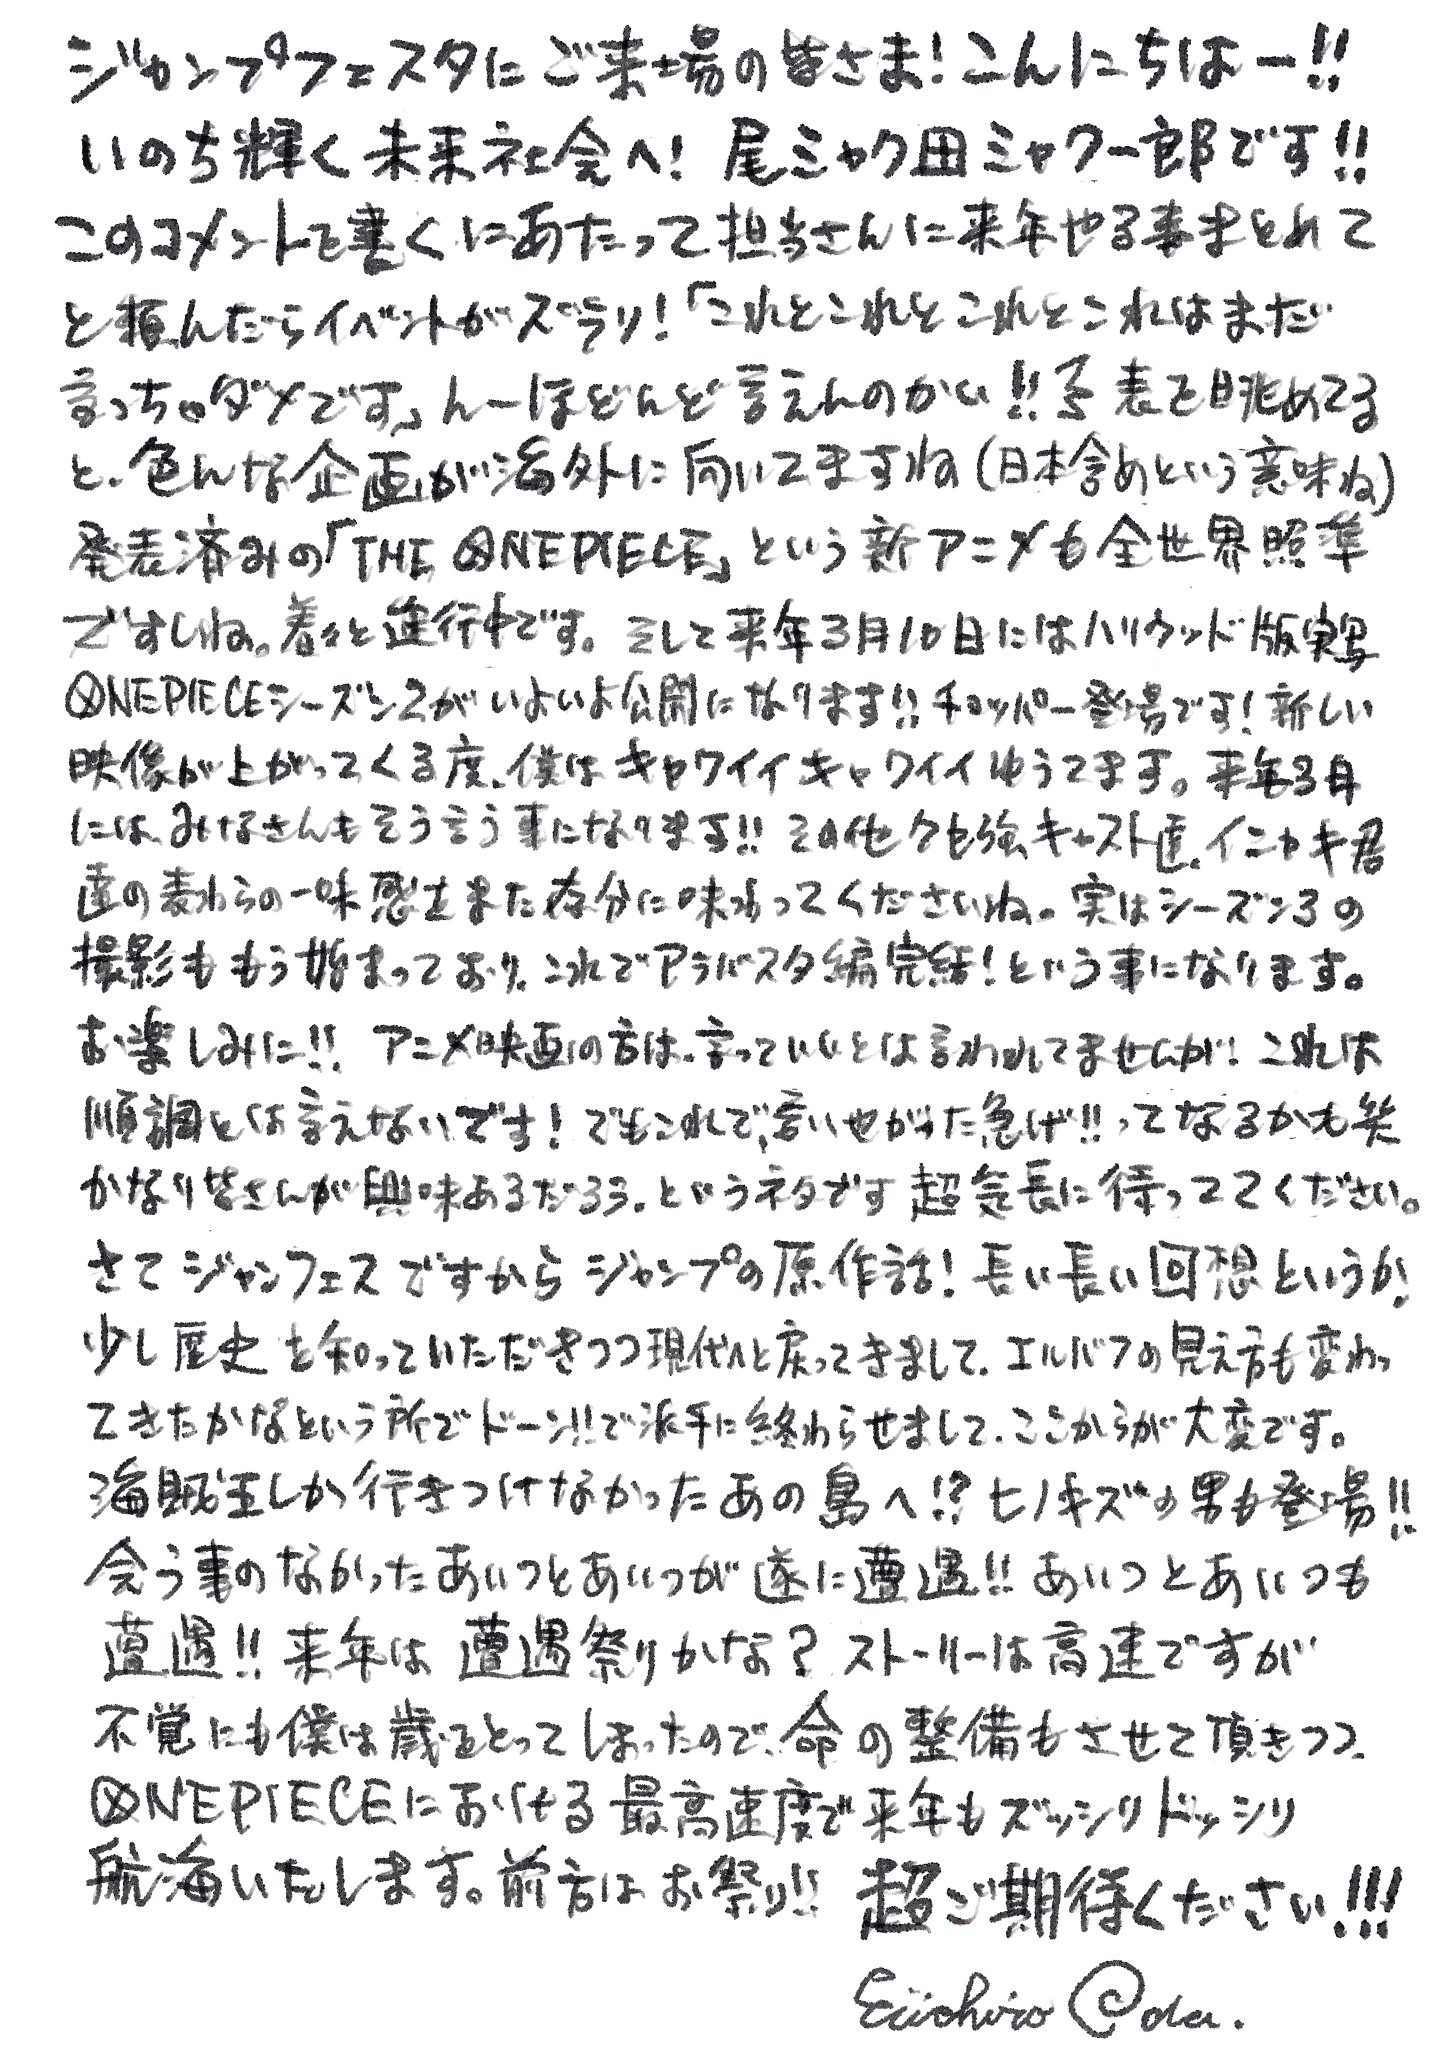 ジャンプフェスタにご来場の皆さま!こんにちはー!!
いのち輝く未来社会へ! 尾ミャク田ミャク一郎です!!
このコメントを書くにあたって担当さんに来年やる事まとめて
と頼んだらイベントがズラリ!「これとこれとこれとこれはまだ
言っちゃダメです」んーほとんど言えんのかい!!予定表を眺めてる
と、色んな企画が海外に向いてますね(日本含めという意味ね)
発表済みの「THE ONE PIECE」という新アニメも全世界照準
ですしね。着々と進行中です。そして来年3月10日にはハリウッド版実写
ONE PIECEシーズン2がいよいよ公開になります!!チョッパー登場です!新しい
映像が上がってくる度、僕はキャワイイキャワイイゆうてます。来年3月
には、みなさんもそう言う事になります!!その他クセ強キャスト達、イニャキ君
達の麦わらの一味感もまた存分に味わってくださいね。実はシーズン3の
撮影ももう始まっており、これでアラバスタ編完結!という事になります。
お楽しみに!! アニメ映画の方は、言っていいとは言われてませんが!これは
順調とは言えないです!でもこれで、言いやがった急げ!!ってなるかも笑
かなり皆さんが興味あるだろう、というネタです超気長に待っててください。
さてジャンフェスですからジャンプの原作話!長い長い回想というか、
少し歴史を知っていただきつつ現代へと戻ってきまして、エルバフの見え方も変わっ
てきたかなという所でドーン!!で派手に終わらせまして、ここからが大変です。
海賊王しか行きつけなかったあの島へ!?ヒノキズの男も登場!!
会う事のなかったあいつとあいつが遂に遭遇!!あいつとあいつも
遭遇!!来年は遭遇祭りかな?ストーリーは高速ですが
不覚にも僕は歳をとってしまったので、命の整備もさせて頂きつつ、
ONE PIECEにおける最高速度で来年もズッシリドッシリ
航海いたします。前方はお祭り!! 超ご期待ください!!!
Eiichiro Oda.